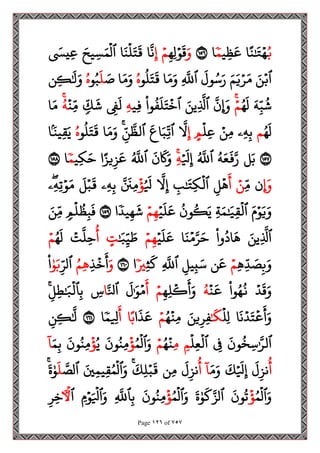 بُهْتَٰنًا عَظِيمًا ١٥٦ وَقَوْلِهِمْ إِنَّا قَتَلْنَا ٱلْمَسِيحَ عِيسَى
ٱبْنَ مَرْيَمَ رَسُولَ ٱللَّهِ وَمَا قَتَلُوهُ وَمَا صَلَبُوهُ وَلَٰكِن
شُبِّهَ لَهُمْ ۚ وَإِنَّ ٱلَّذِينَ ٱخْتَلَفُوا۟ فِيهِ لَفِى شَكٍّ مِّنْهُ ۚ مَا
لَهُم بِهِۦ مِنْ عِلْمٍ إِلَّا ٱتِّبَاعَ ٱلظَّنِّ ۚ وَمَا قَتَلُوهُ يَقِينًۢا
١٥٧ بَل رَّفَعَهُ ٱللَّهُ إِلَيْهِ ۚ وَكَانَ ٱللَّهُ عَزِيزًا حَكِيمًا ١٥٨
وَإِن مِّنْ أَهْلِ ٱلْكِتَٰبِ إِلَّا لَيُؤْمِنَنَّ بِهِۦ قَبْلَ مَوْتِهِۦ ۖ
وَيَوْمَ ٱلْقِيَٰمَةِ يَكُونُ عَلَيْهِمْ شَهِيدًا ١٥٩ فَبِظُلْمٍ مِّنَ
ٱلَّذِينَ هَادُوا۟ حَرَّمْنَا عَلَيْهِمْ طَيِّبَٰتٍ أُحِلَّتْ لَهُمْ
وَبِصَدِّهِمْ عَن سَبِيلِ ٱللَّهِ كَثِيرًا ١٦٠ وَأَخْذِهِمُ ٱلرِّبَوٰا۟
وَقَدْ نُهُوا۟ عَنْهُ وَأَكْلِهِمْ أَمْوَٰلَ ٱلنَّاسِ بِٱلْبَٰطِلِ ۚ
وَأَعْتَدْنَا لِلْكَٰفِرِينَ مِنْهُمْ عَذَابًا أَلِيمًا ١٦١ لَّٰكِنِ
ٱلرَّٰسِخُونَ فِى ٱلْعِلْمِ مِنْهُمْ وَٱلْمُؤْمِنُونَ يُؤْمِنُونَ بِمَآ
أُنزِلَ إِلَيْكَ وَمَآ أُنزِلَ مِن قَبْلِكَ ۚ وَٱلْمُقِيمِينَ ٱلصَّلَوٰةَ ۚ
وَٱلْمُؤْتُونَ ٱلزَّكَوٰةَ وَٱلْمُؤْمِنُونَ بِٱللَّهِ وَٱلْيَوْمِ ٱلْءَاخِرِ
Page ١٢٦ of ٧٥٧